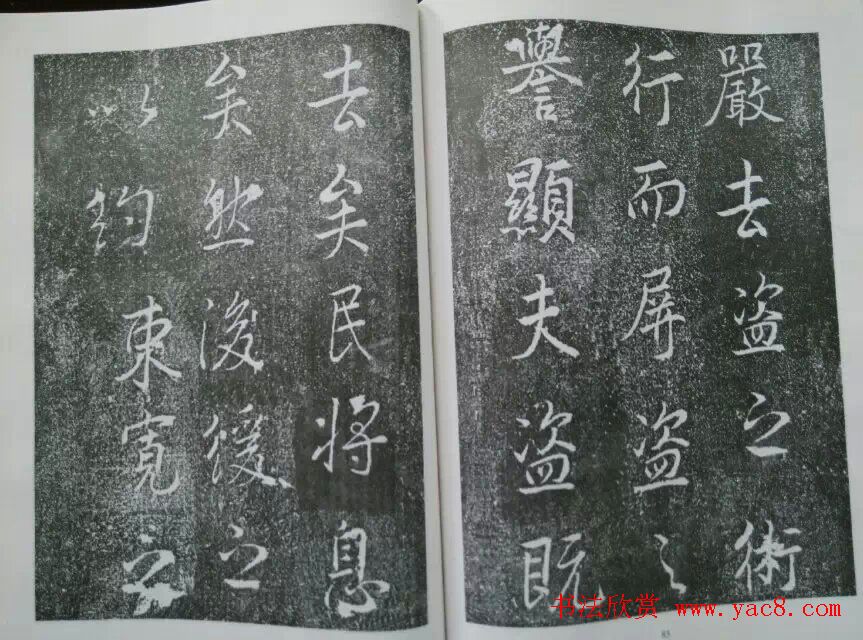 嚴去盜之術
行而屏盜之
譽顯夫盜既
去矣民將息
矣然後緩之
以鈞束寬之
书法欣赏 www.yac8.com
83